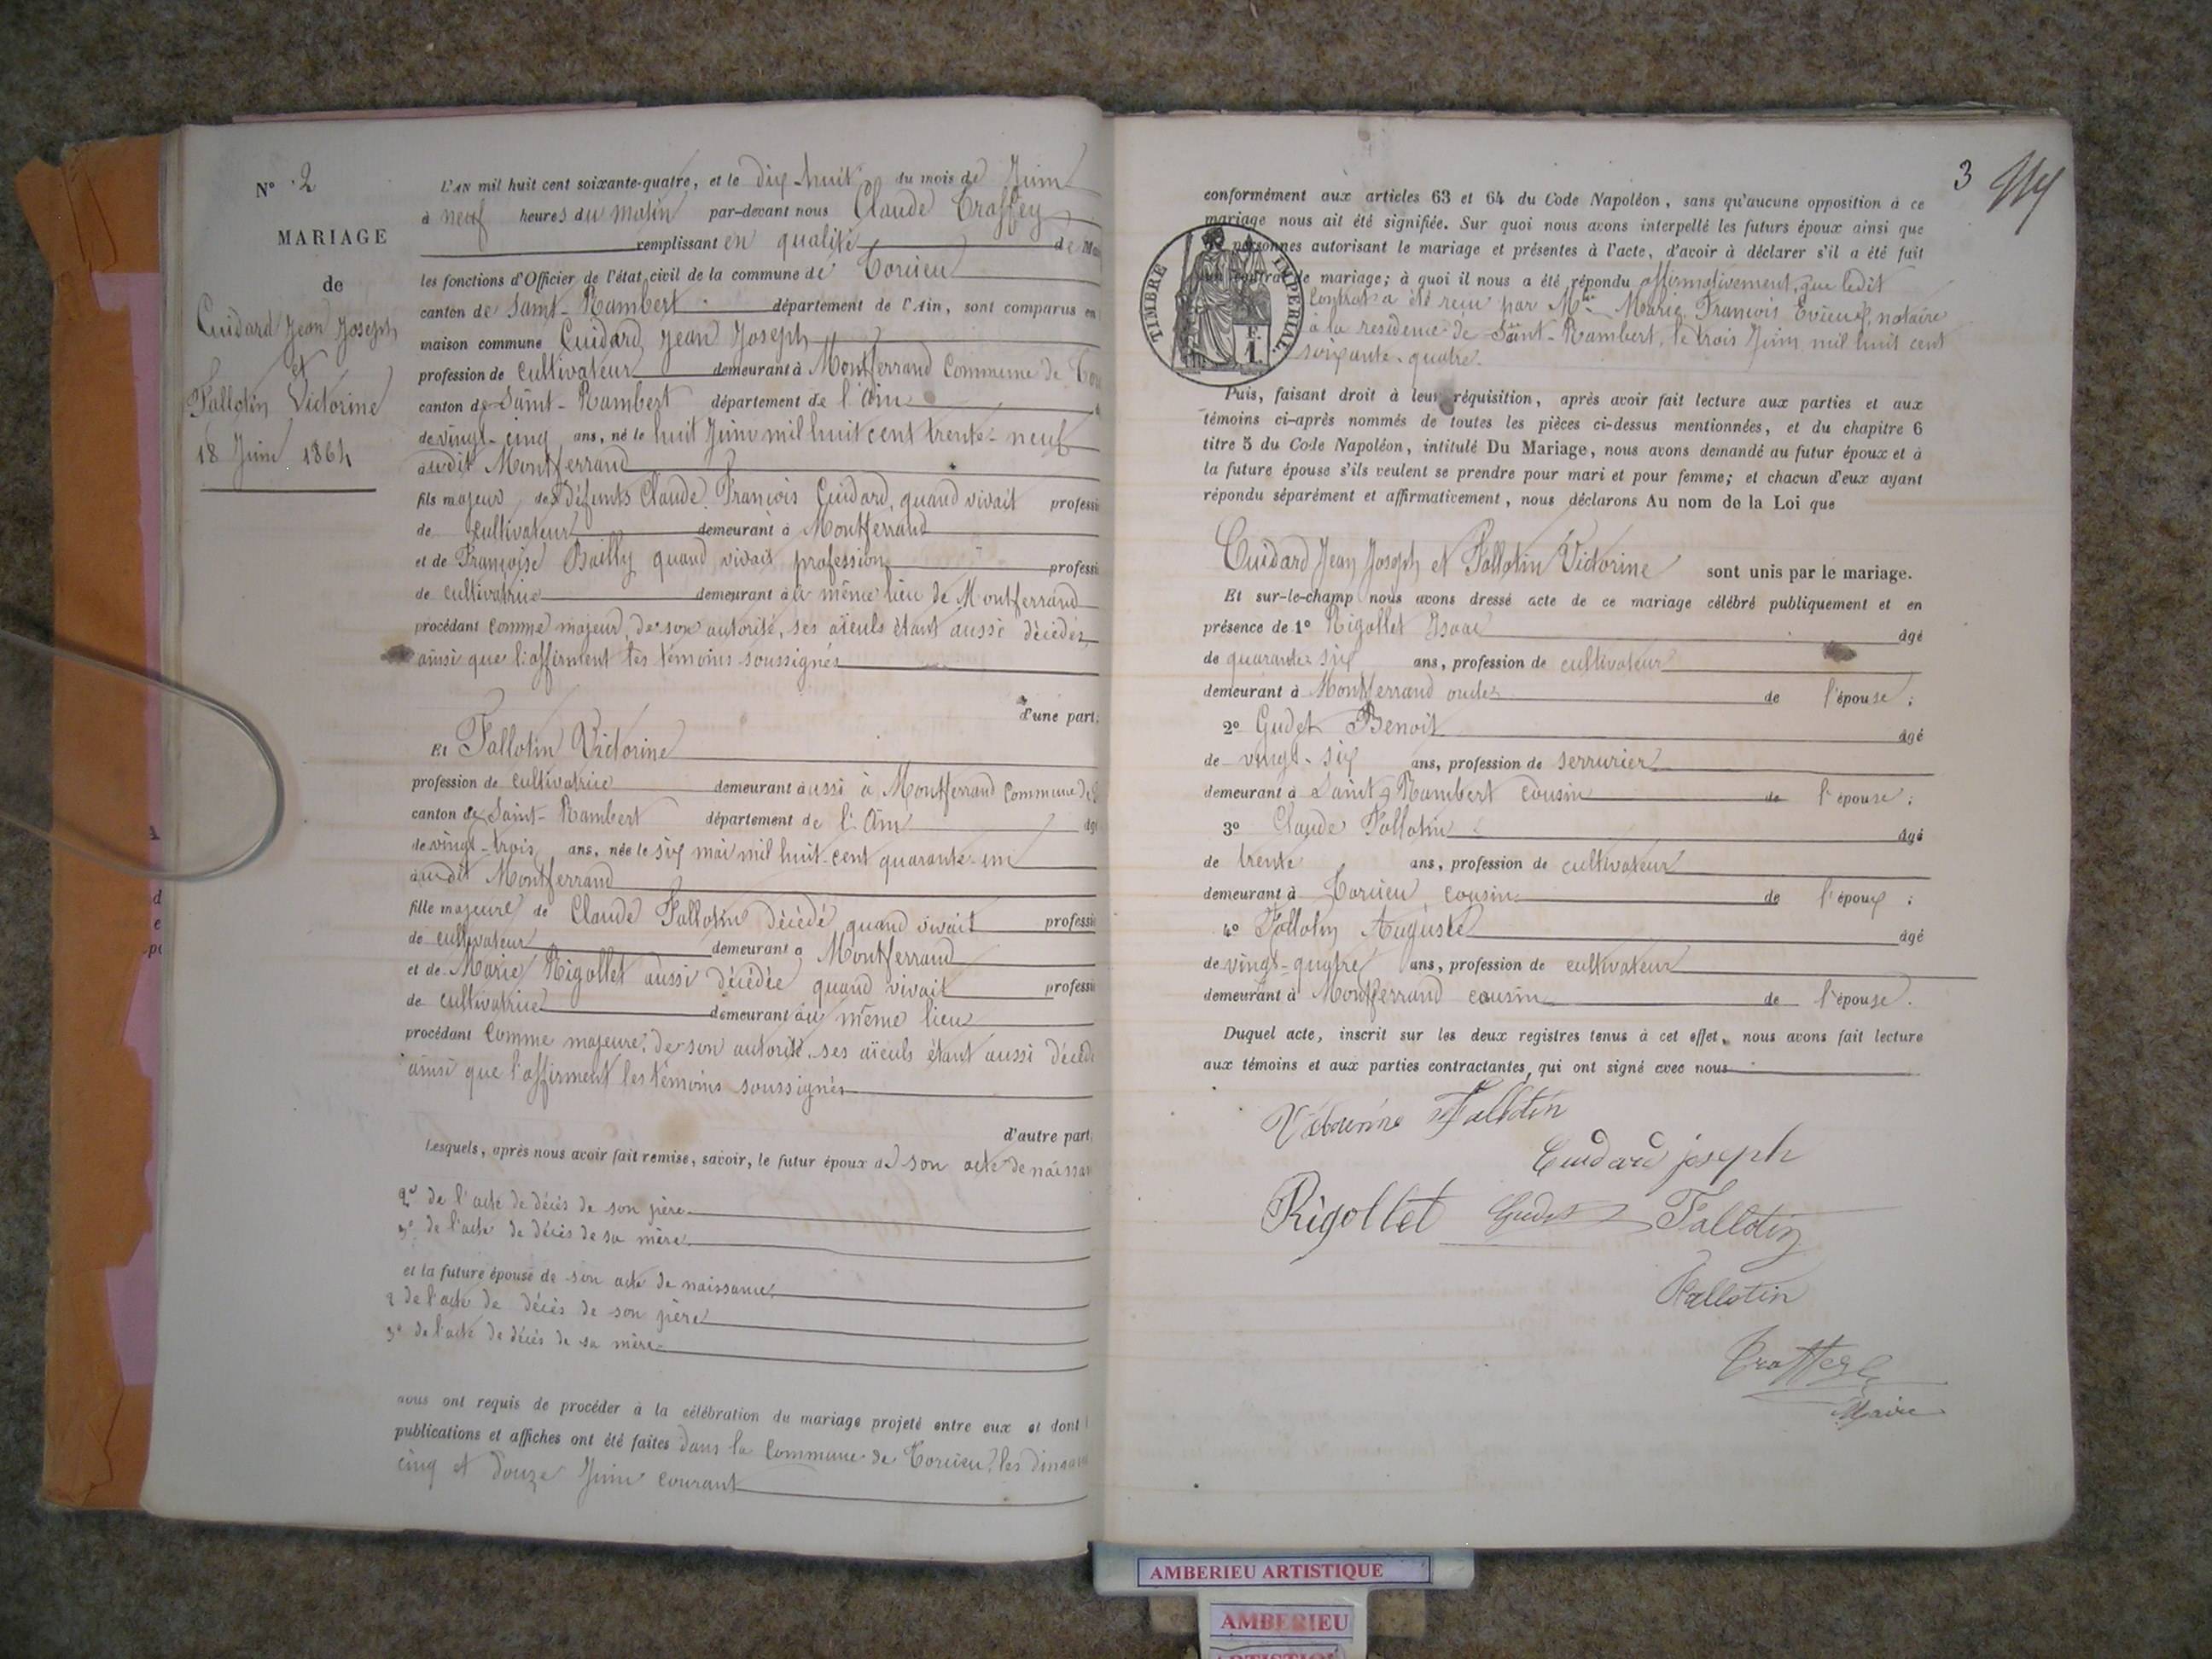 N° 2
MARIAGE
de
Cuidard Jean Joseph
et
Fallotin Victorine
18 Juin 1864
L'AN mil huit cent soixante-quatre, et le dix-huit du mois de Juin
à neuf heures du matin par-devant nous Claude Traffey
remplissant en qualité de
les fonctions d'Officier de l'état civil de la commune de Torcieu
canton de Saint-Rambert département de l'Ain, sont comparus en
maison commune Cuidard Jean Joseph
profession de cultivateur demeurant à Montferrand Commune de
canton de Saint-Rambert département de l'Ain
de vingt-cinq ans, né le huit Juin mil huit cent trente-neuf
audit Montferrand
fils majeur des défunts Claude François Cuidard, quand vivait
de cultivateur demeurant à Montferrand
et de Françoise Bailly quand vivait profession
de cultivatrice demeurant à le même lieu de Montferrand
procédant comme majeur, de son autorité, ses aïeuls étant aussi décédés
ainsi que l'affirment les témoins soussignés
d'une part;
Et Fallotin Victorine
profession de cultivatrice demeurant aussi à Montferrand Commune de
canton de Saint-Rambert département de l'Ain
de vingt-trois ans, née le six mai mil huit-cent quarante-un
audit Montferrand
fille majeure de Claude Fallotin décédé quand vivait
de cultivateur demeurant à Montferrand
et de Marie Rigollet aussi décédée quand vivait
de cultivatrice demeurant au même lieu
procédant comme majeure, de son autorité, ses aïeuls étant aussi
ainsi que l'affirment les témoins soussignés
d'autre part
Lesquels, après nous avoir fait remise, savoir, le futur époux de son acte de
2° de l'acte de décès de son père
3° de l'acte de décès de sa mère
et la future épouse de son acte de naissance
2 de l'acte de décès de son père
3° de l'acte de décès de sa mère
nous ont requis de procéder à la célébration du mariage projeté entre eux et dont
publications et affiches ont été faites dans la Commune de Torcieu, les
cinq et douze Juin courant
3
conformément aux articles 63 et 64 du Code Napoléon, sans qu'aucune opposition à ce
mariage nous ait été signifiée. Sur quoi nous avons interpellé les futurs époux ainsi que
personnes autorisant le mariage et présentes à l'acte, d'avoir à déclarer s'il a été fait
de mariage; à quoi il nous a été répondu affirmativement, que ledit
Contrat a été reçu par Marie François notaire
à la residence de Saint-Rambert, le trois Juin mil huit cent
soixante-quatre.
TIMBRE IMPERIAL
F.
1.
Puis, faisant droit à leur réquisition, après avoir fait lecture aux parties et aux
témoins ci-après nommés de toutes les pièces ci-dessus mentionnées, et du chapitre 6
titre 5 du Code Napoléon, intitulé Du Mariage, nous avons demandé au futur époux et à
la future épouse s'ils veulent se prendre pour mari et pour femme; et chacun d'eux ayant
répondu séparément et affirmativement, nous déclarons Au nom de la Loi que
Cuidard Jean Joseph et Fallotin Victorine sont unis par le mariage.
Et sur-le-champ nous avons dressé acte de ce mariage célébré publiquement et en
présence de 1° Rigollet Isaac âgé
de quarante-six ans, profession de cultivateur
demeurant à Montferrand oncle de l'épouse;
2° Gudet Benoit âgé
de vingt-six ans, profession de serrurier
demeurant à Saint-Rambert cousin de l'épouse;
3° Claude Fallotin âgé
de trente ans, profession de cultivateur
demeurant à Torcieu, cousin de l'époux;
4° Fallotin Auguste âgé
de vingt-quatre ans, profession de cultivateur
demeurant à Montferrand cousin de l'épouse.
Duquel acte, inscrit sur les deux registres tenus à cet effet, nous avons fait lecture
aux témoins et aux parties contractantes, qui ont signé avec nous
Fallotin
Cuidard joseph
Rigollet Gudet Fallotin
Fallotin
Maire
AMBERIEU ARTISTIQUE
AMBERIEU
ARTISTIQUE